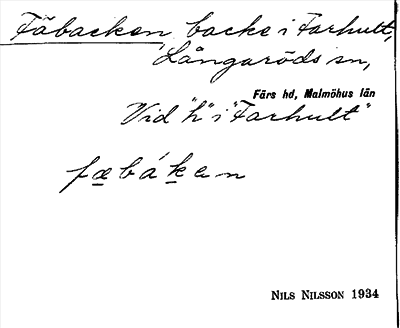 Fäbacken, backe i Farhult,
Långaröds sn,
Färs hd, Malmöhus län
Vid "h" i "Farhult"
fæbáken
NILS NILSSON 1934